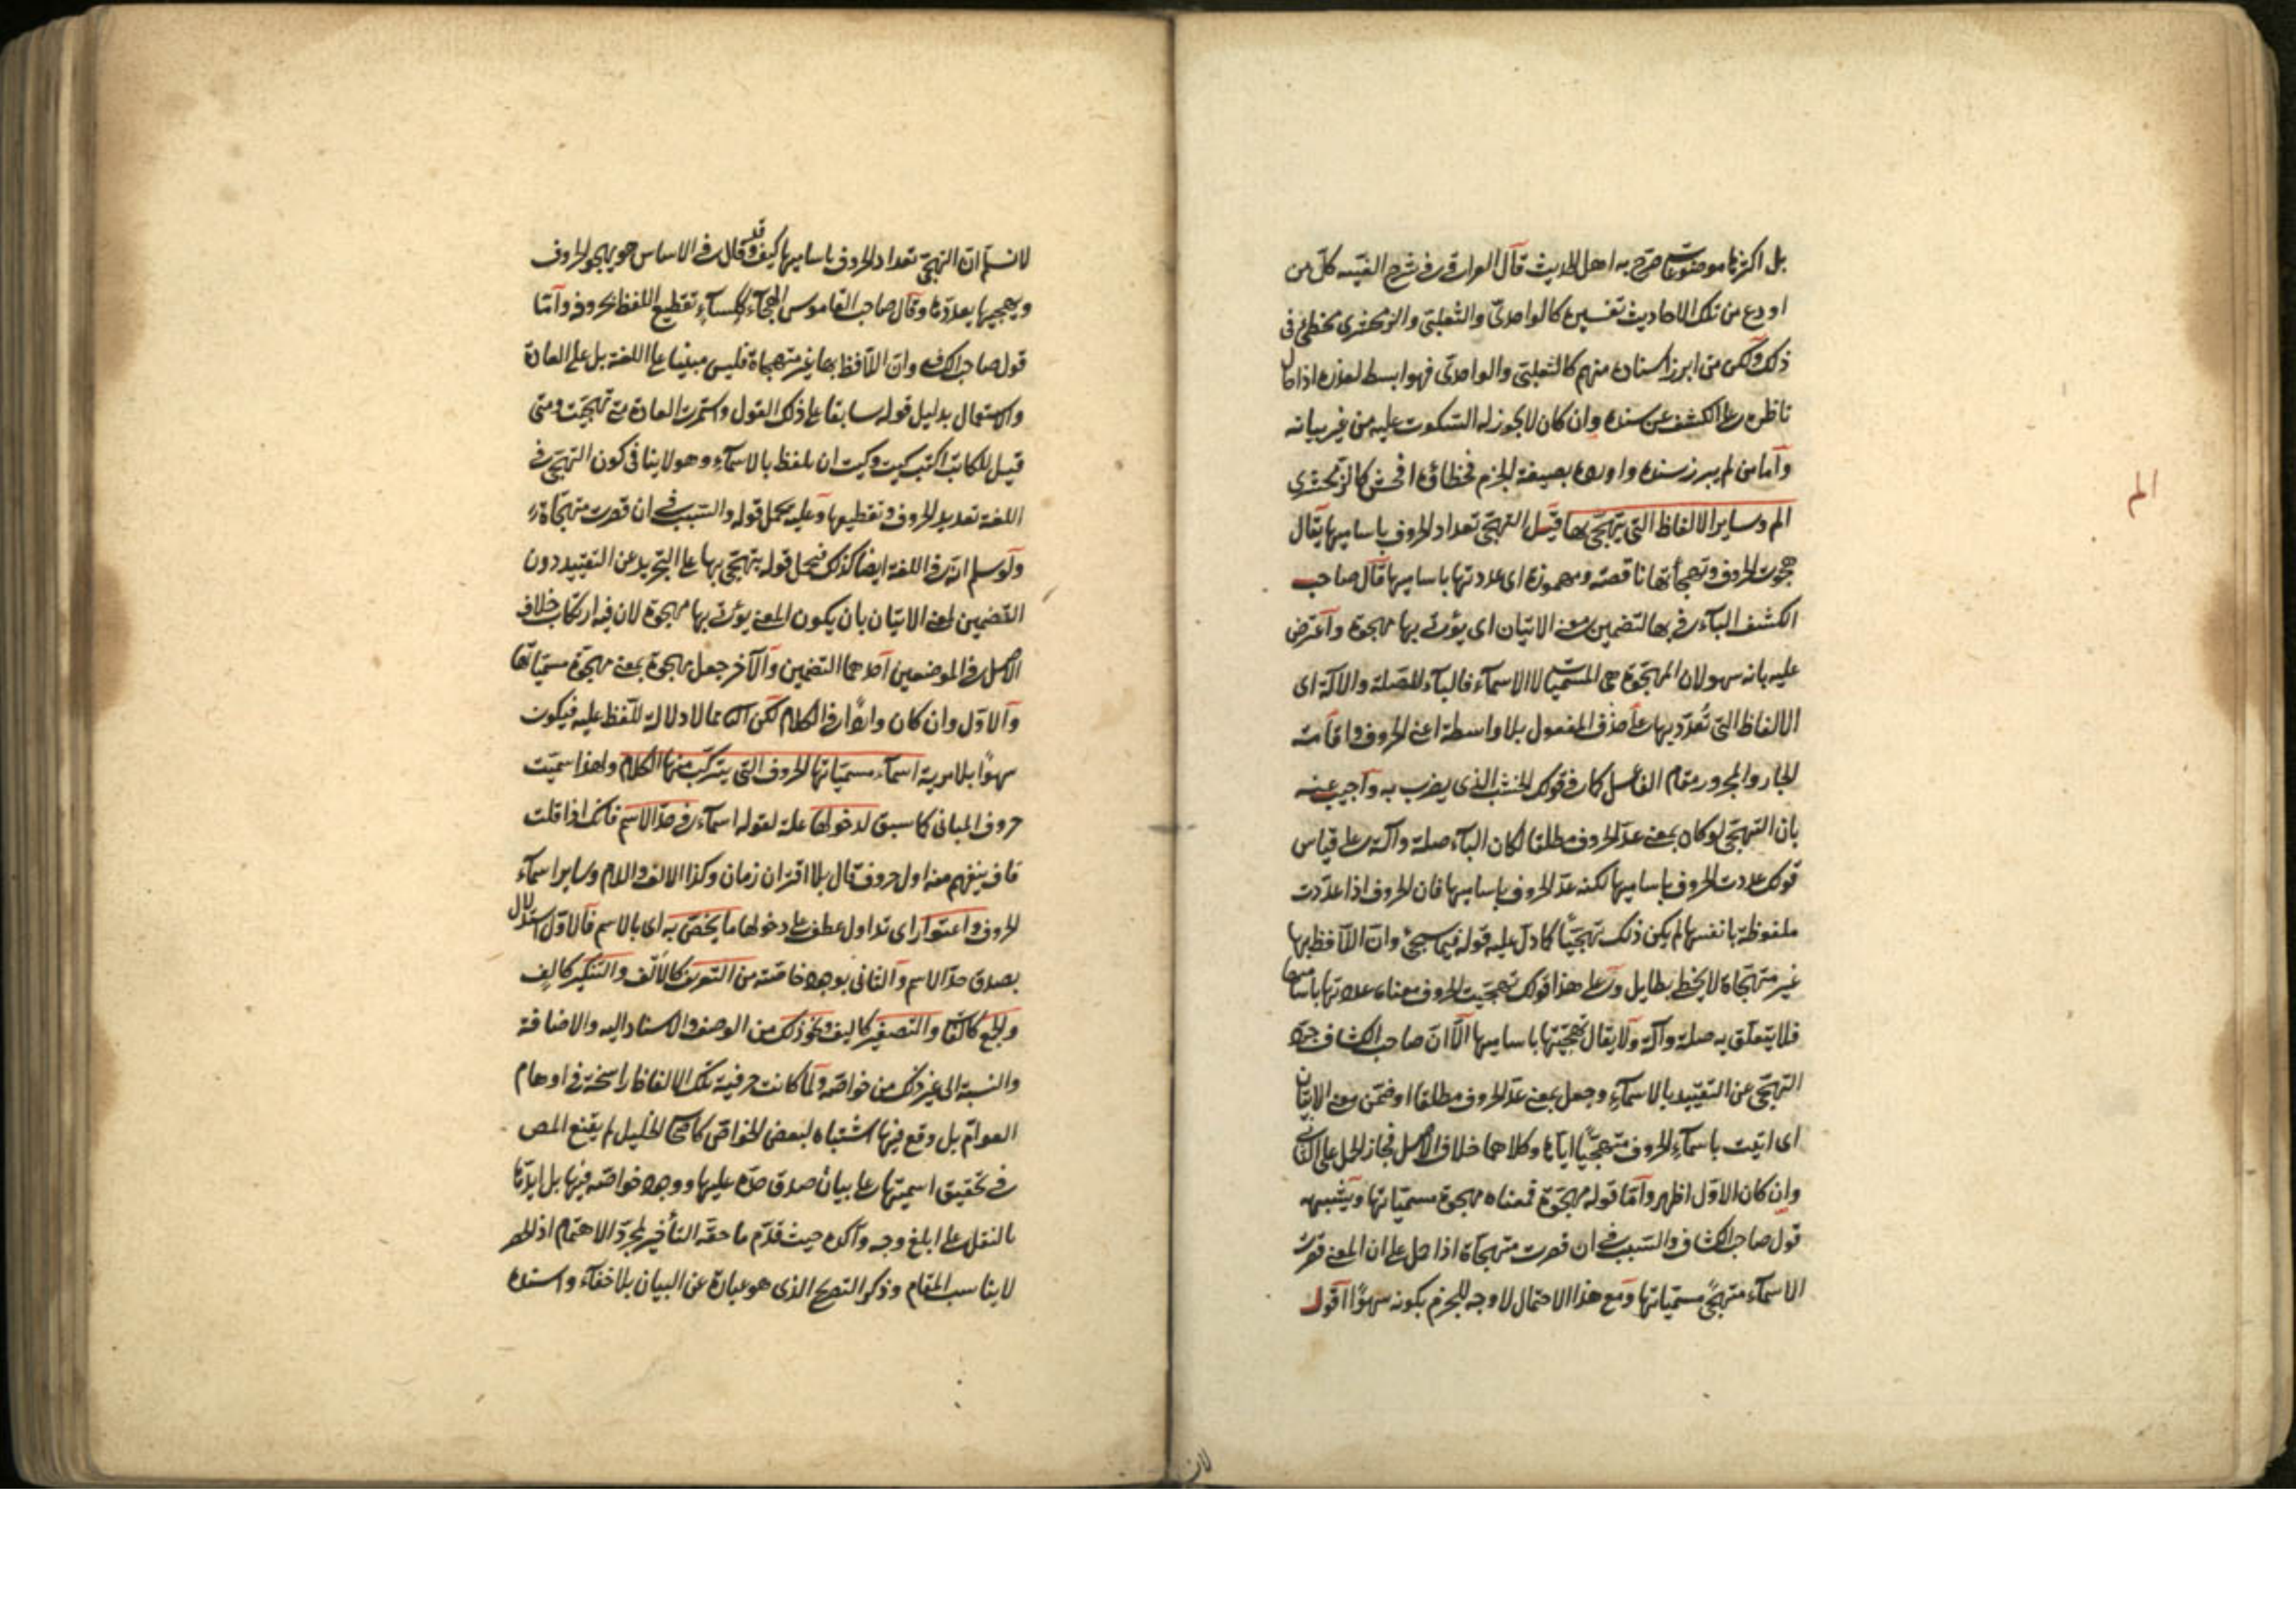 بل اكثرها موضوعات صرح به اهل الحديث قال العراقي في شرح الفيته كل من
اودع من تلك الاحاديث تفسيره كالواحدى والثعلبى والزمخشرى مخطئ فى
ذلك ولكن من ابرز اسناده منهم كالثعلبى والواحدى فهو ابسط لعذره اذ احال
ناظره على الكشف عن سنده وان كان لا يجوز له السكوت عليه من غير بيانه
وأما من لم يبرز سنده واورده بصيغة الجزم فخطاؤه افحش كالزمخشرى
الم
الم وساير الالفاظ التى يتهجى بها قيل التهجى تعداد الحروف باساميها يقال
هجوت الحروف وتهجأتها ناقصة ومهموزة اى عددتها باساميها قال صاحب
الكشف البآء فى بها لتضمين معنى الاتيان اى يؤتى بها مهجوة وأعترض
عليه بانه سهو لان المهجوة هى المسميات لا الاسمآء فالبآء للصلة والآلة اى
الالفاظ التى تعدد بها على حذف المفعول بلا واسطة اعنى الحروف واقامت
الجار والمجرور مقام الفاعل كما فى قولك الخشب الذى يضرب به وأجيب عنه
بان التهجى لو كان بمعنى عد الحروف مطلقا لكان البآء صلة وآلة على قياس
قولك عددت الحروف باساميها لكنه عد الحروف باساميها فان الحروف اذا عددت
ملفوظة بانفسها لم يكن ذلك تهجيا كما دل عليه قوله فيما سيجئ وان اللافظ بها
غير متهجاة لا يحظ بطايل وعلى هذا قولك تهجيت الحروف معناه عددتها باساميها
فلا يتعلق به صلة وآلة ولا يقال تهجيتها باساميها الا ان صاحب الكشاف جرد
التهجى عن التقييد بالاسمآء وجعل بمعنى عد الحروف مطلقا او ضمن معنى الاتيان
اى اتيت باسمآء الحروف متهجيا اياها وكلاهما خلاف الاصل فجاز الحمل على الثانى
وإن كان الاول اظهر وأما قوله مهجوة فمعناه مهجوة مسمياتها ويشبهه
قول صاحب الكشاف والسبب فى ان قصرت متهجاة اذا حمل على ان المعنى قصرت
الاسمآء متهجى مسمياتها ومع هذا الاحتمال لا وجه للجزم بكونه سهوا اقول
لان
لا نسلم ان التهجى تعداد الحروف باساميها كيف وقد قال فى الاساس هو يهجو الحروف
ويهجيها يعددها وقال صاحب القاموس الهجآء ككسآء تقطيع اللفظ بحروفه وأما
قول صاحب الكشاف وان اللافظ بها غير متهجاة فليس مبنيا على اللغة بل على العادة
والاستعمال بدليل قوله سابقا على ذلك القول واستمرت العادة متى تهجيت ومتى
قيل للكاتب اكتب كيت وكيت ان يلفظ بالاسمآء وهو لا ينافى كون التهجى فى
اللغة تعديد الحروف وتقطيعها وعليه يحمل قوله والسبب فى ان قصرت متهجاة
ولو سلم انه فى اللغة ايضا كذلك فيحمل قوله يتهجى بها على التجريد عن التقييد دون
التضمين لمعنى الاتيان بان يكون المعنى يؤتى بها مهجوة لان فيه ارتكاب خلاف
الاصل فى الموضعين أحدهما التضمين والآخر جعل مهجوة بمعنى مهجوة مسمياتها
والاول وان كان واردا فى الكلام لكن الثانى مما لا دلالة للفظ عليه فيكون
سهوا بلا مرية اسمآء مسمياتها الحروف التى يتركب منها الكلام ولهذا سميت
حروف المبانى كما سبق لدخولها علة لقوله اسمآء فى حد الاسم فانك اذا قلت
قاف يفهم منه اول حروف قال بلا اقتران زمان وكذا الالف واللام وساير اسمآء
الحروف واعتوار اى تداول عطف على دخولها ما يختص به اى بالاسم فالاول استدلال
بصدق حد الاسم والثانى بوجود خاصته من التعريف كالألف والتنكير كالف
والجمع كالفات والتصغير كاليف ونحو ذلك من الوصف والاسناد اليه والاضافة
والنسبة الى غير ذلك من خواصه ولما كانت حرفية تلك الالفاظ راسخة فى اوهام
العوام بل وقع فيها اشتباه لبعض الخواص كاصحاب الخليل لم يقنع المص
فى تحقيق اسميتها على بيان صدق حده عليها ووجود خواصه فيها بل ايدها
بالنقل على ابلغ وجه وآكده حيث قدم ما حقه التأخير لمجرد الاهتمام اذ الحصر
لا يناسب المقام وذكر التصريح الذى هو عبارة عن البيان بلا خفآء واسنده